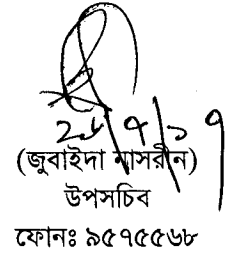 ২৮/৭/১৭
(জুবাইদা নাসরীন)
উপসচিব
ফোনঃ ৯৫৭৫৫৬৮